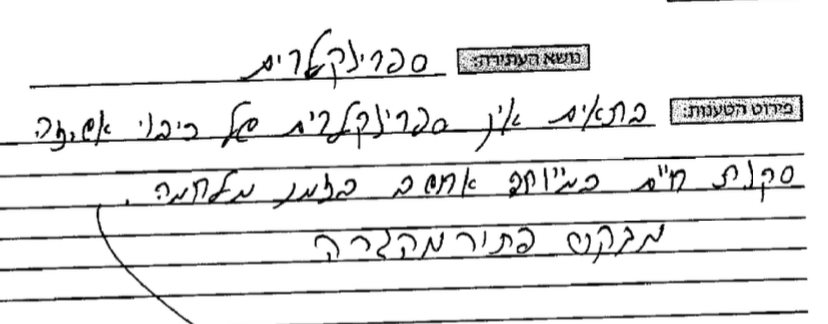 נושא העתירה: ספרינקלרים
פירוט הטענות: בתאים אין ספרינקלרים של כיבוי אש, זה
סכנת חיים במיוחד בזמן מלחמה.
מבקש פתור מהגרה